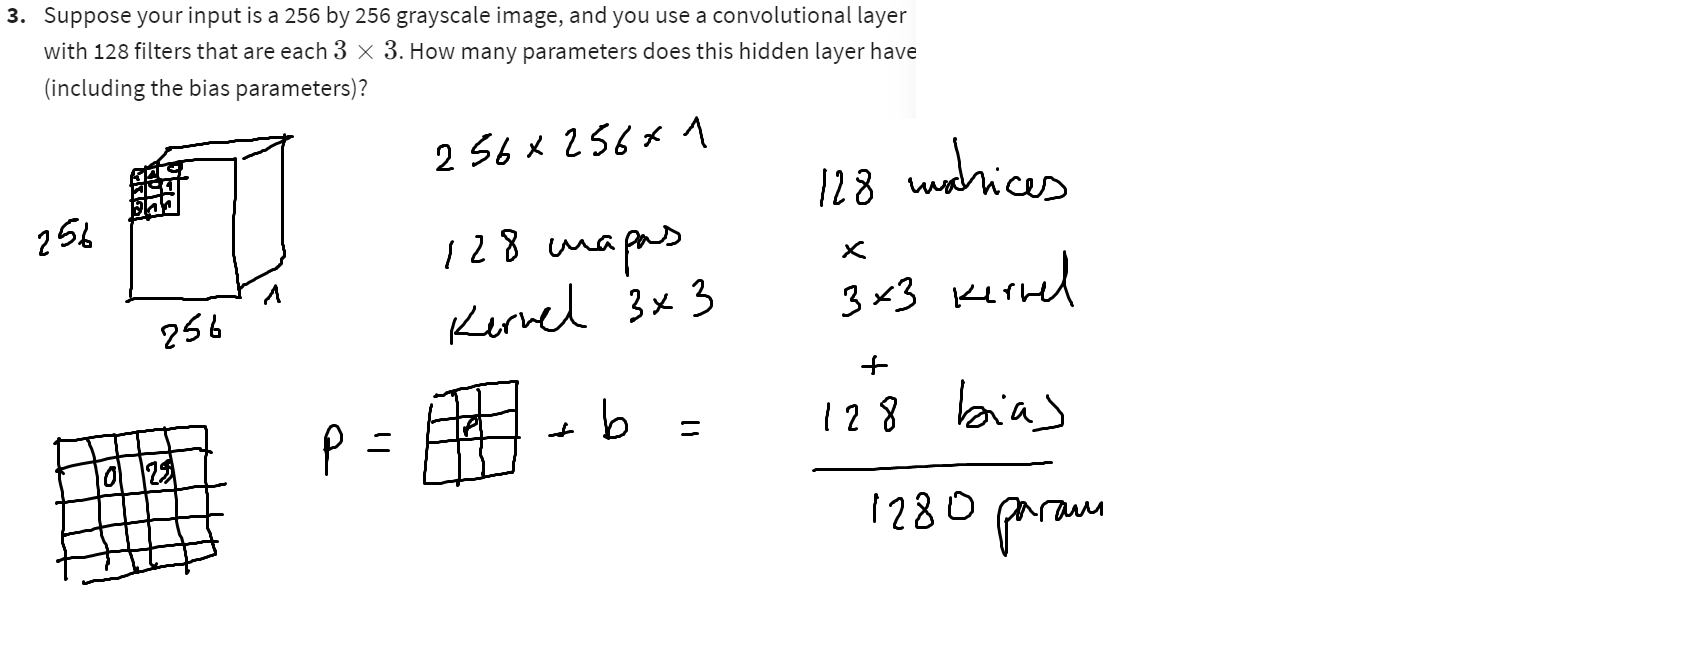 3. Suppose your input is a 256 by 256 grayscale image, and you use a convolutional layer
with 128 filters that are each 3 × 3. How many parameters does this hidden layer have
(including the bias parameters)?
256 x 256 x 1
128 matrices
256
128 mapas
x
Kernel 3x3
3x3 Kernel
1
256
+
128 bias
P = P + b =
0 25
1280 param